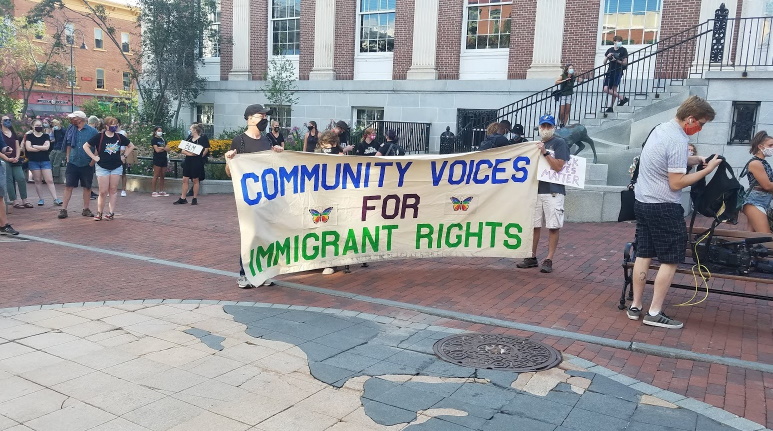 COMMUNITY VOICES
FOR
IMMIGRANT RIGHTS
BLM
MATTER